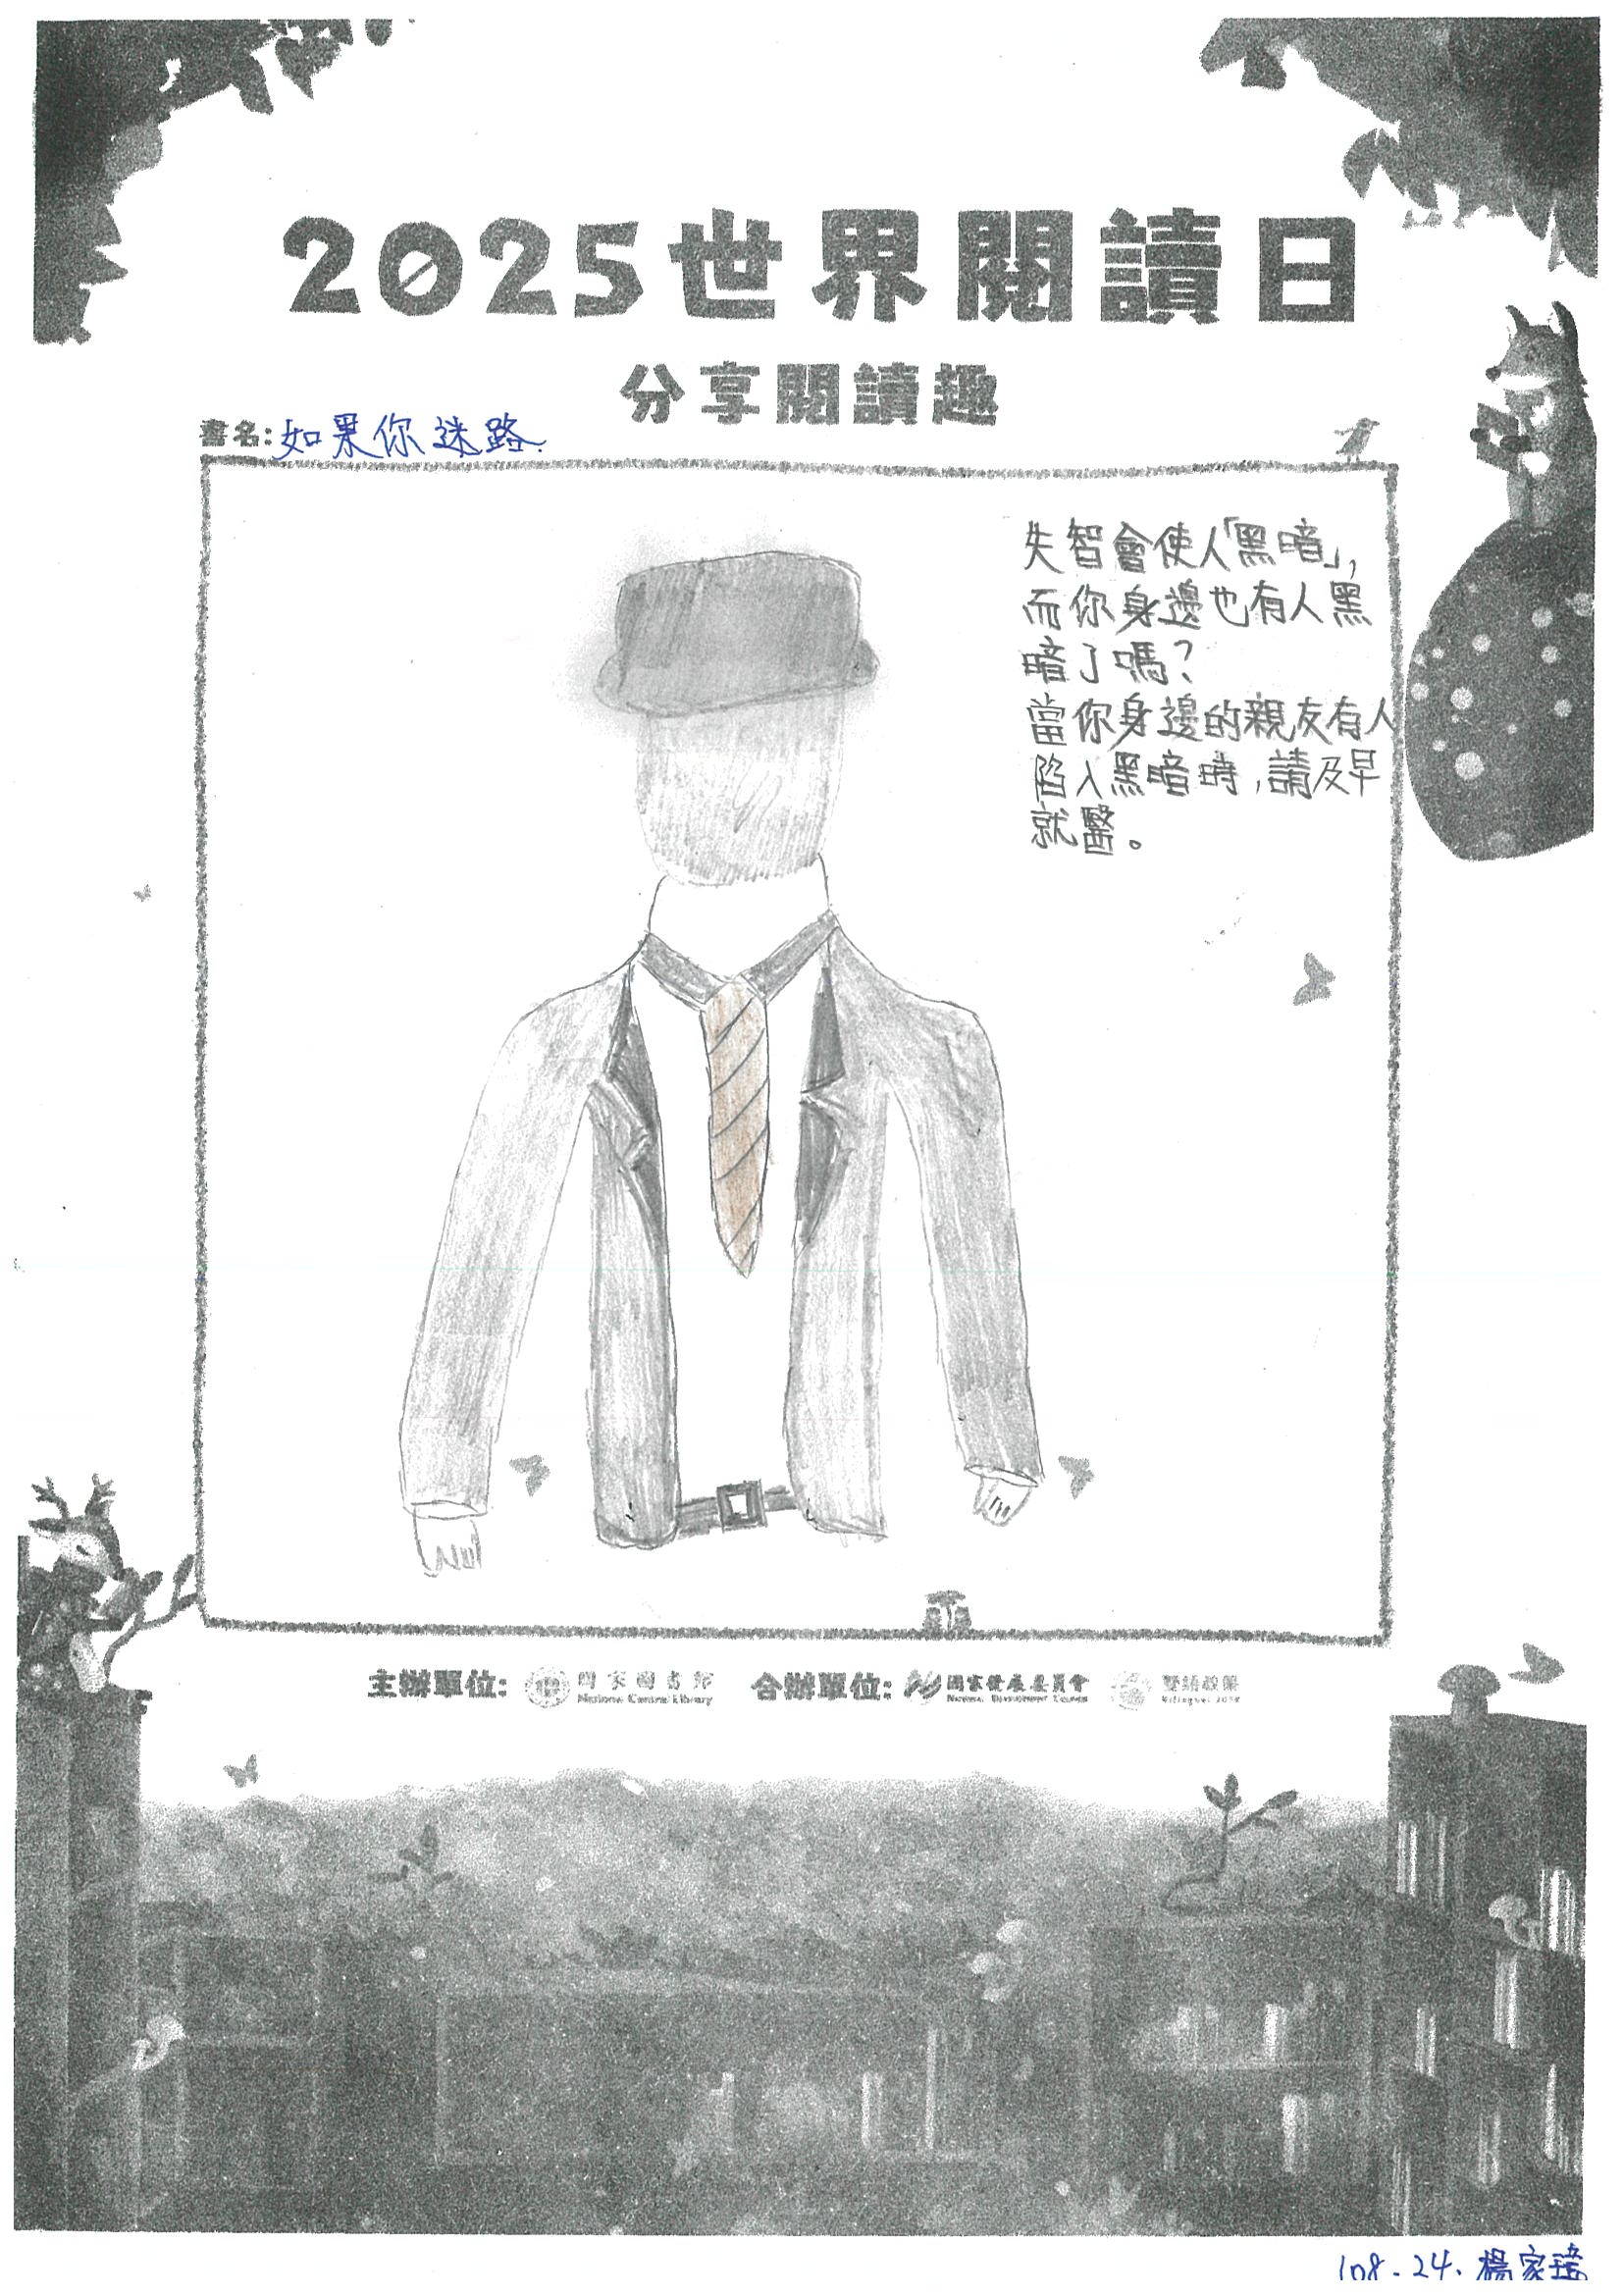 2025世界閱讀日
分享閱讀趣
書名:如果你迷路.
失智會使人「黑暗」,
而你身邊也有人黑
暗了嗎?
當你身邊的親友有人
陷入黑暗時,請及早
就醫。
主辦單位: 國家圖書館 National Central Library 合辦單位: 國家發展委員會 National Development Council 雙語政策 Bilingual 2030
108-24. 楊家瑋